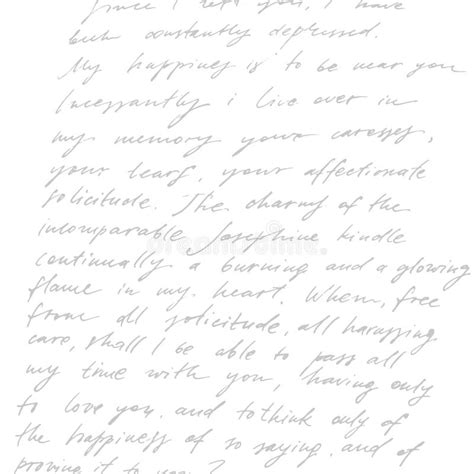 Since I left you, I have
been constantly depressed.
My happiness is to be near you
Incessantly i live over in
my memory your caresses,
your tears, your affectionate
solicitude. The charms of the
incomparable Josephine kindle
continually a burning and a glowing
flame in my heart. When, free
from all solicitude, all harassing
care, shall I be able to pass all
my time with you, having only
to love you, and to think only of
the happiness of so saying, and of
proving it to you?
dreamstime